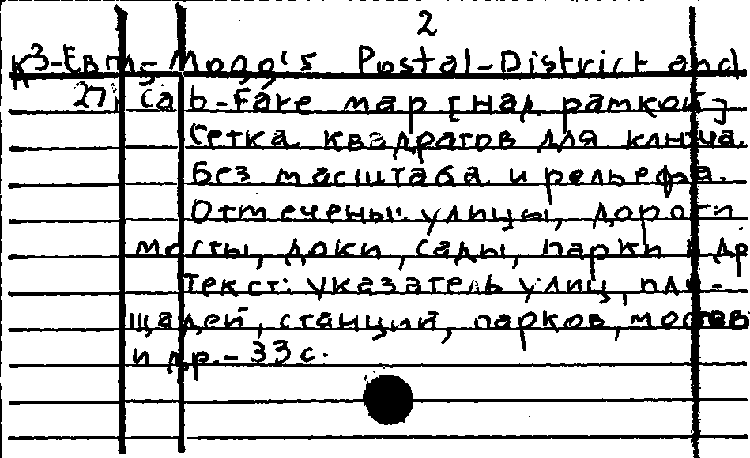 2
К3-Евт- Mogg's Postal-District and
27, Cab-Fare map [над рамкой]
Сетка квадратов для ключа.
Без масштаба и рельефа.
Отмечены: улицы, дороги
мосты, доки, сады, парки и др
Текст: указатель улиц, пло-
щадей, станций, парков, мостов
и др. - 33 с.